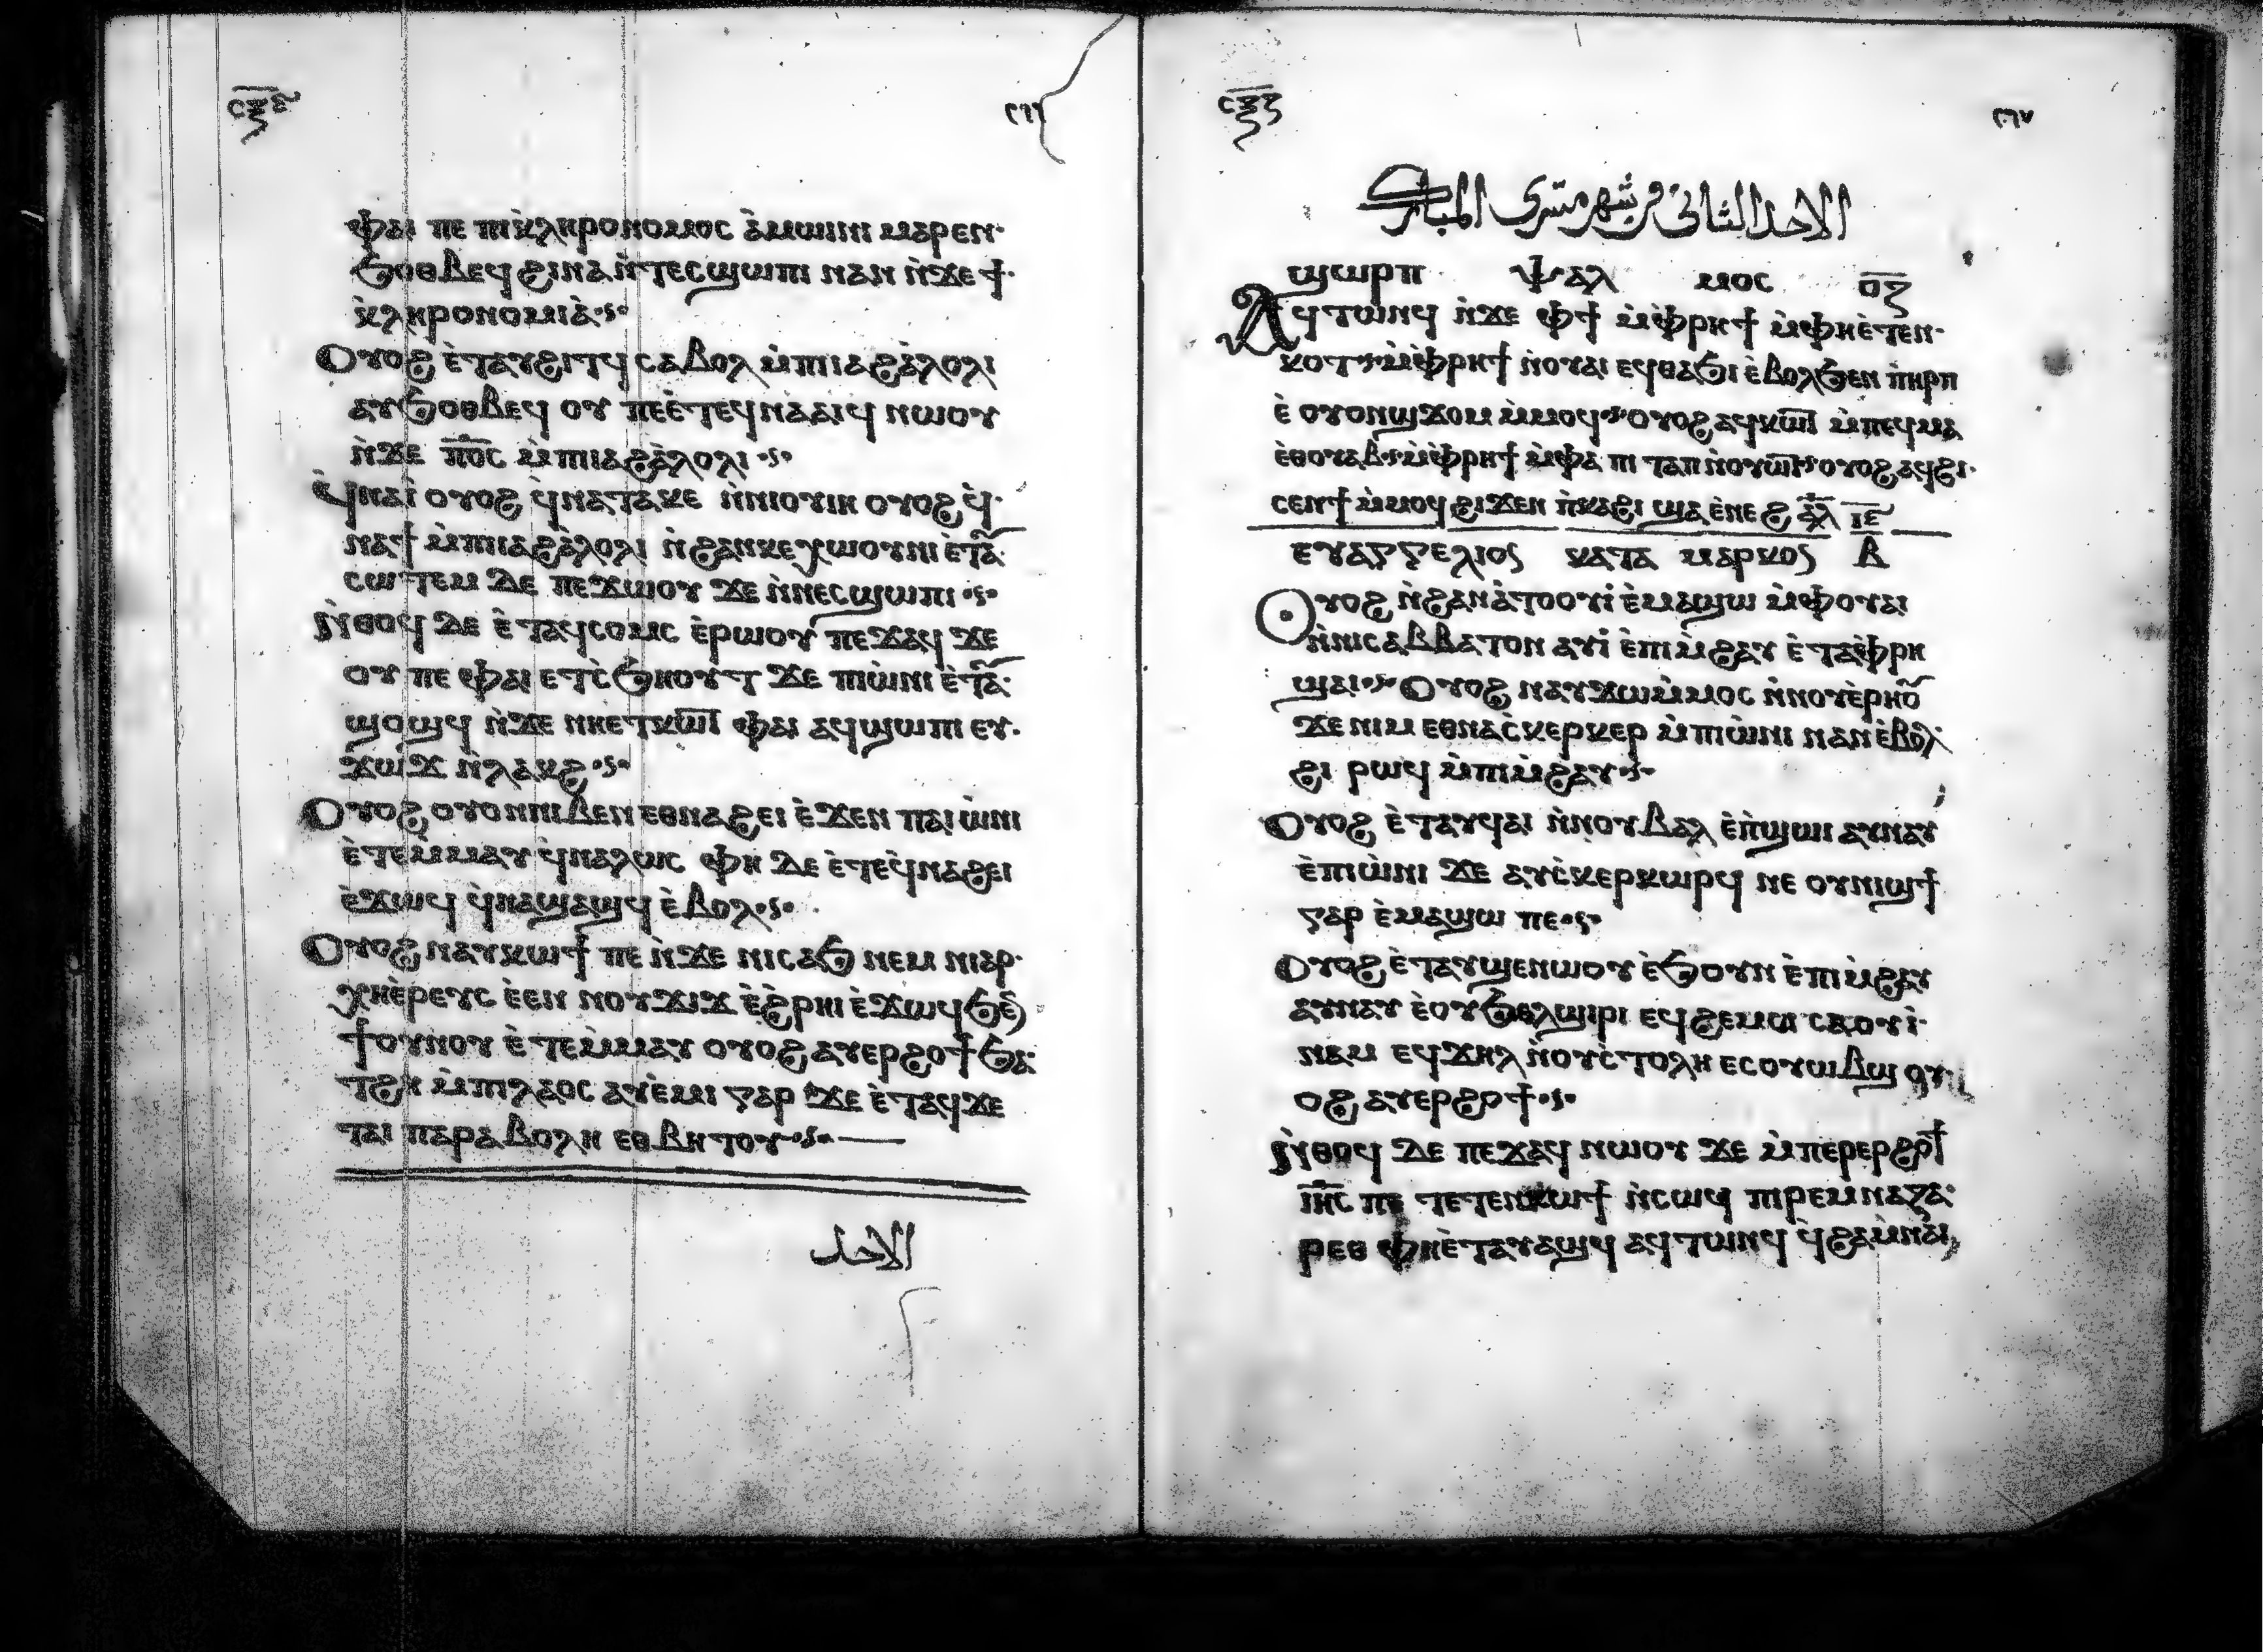 ⲥⲝⲋ ٢٦٦
ⲫⲁⲓ ⲡⲉ ⲡⲓⲕ̀ⲗⲏⲣⲟⲛⲟⲙⲟⲥ ⲁ̀ⲙⲱⲓⲛⲓ ⲙⲁⲣⲉⲛ
ϧⲟⲑⲃⲉϥ ϩⲓⲛⲁ ⲛ̀ⲧⲉⲥϣⲱⲡⲓ ⲛⲁⲛ ⲛ̀ϫⲉ ϯ
ⲕ̀ⲗⲏⲣⲟⲛⲟⲙⲓⲁ̀
Ⲟⲩⲟϩ ⲉ̀ⲧⲁⲩϩⲓⲧϥ ⲥⲁⲃⲟⲗ ⲙ̀ⲡⲓⲁϩⲁ̀ⲗⲟⲗⲓ
ⲁⲩϧⲟⲑⲃⲉϥ ⲟⲩ ⲡⲉⲉ̀ⲧⲉϥⲛⲁⲁⲓϥ ⲛⲱⲟⲩ
ⲛ̀ϫⲉ ⲡ̅ⲟ̅ⲥ̅ ⲙ̀ⲡⲓⲁϩⲁ̀ⲗⲟⲗⲓ
ϥ̀ⲛⲁⲓ̀ ⲟⲩⲟϩ ϥ̀ⲛⲁⲧⲁⲕⲉ ⲛ̀ⲛⲓⲟⲩⲓⲏ ⲟⲩⲟϩ ϥ̀
ⲛⲁϯ ⲙ̀ⲡⲓⲁϩⲁ̀ⲗⲟⲗⲓ ⲛ̀ϩⲁⲛⲕⲉⲭⲱⲟⲩⲛⲓ ⲉ̀ⲧⲁ̅
ⲥⲱⲧⲉⲙ ⲇⲉ ⲡⲉϫⲱⲟⲩ ϫⲉ ⲛ̀ⲛⲉⲥϣⲱⲡⲓ
ⲛ̀ⲑⲟϥ ⲇⲉ ⲉ̀ⲧⲁϥⲥⲟⲙⲥ ⲉ̀ⲣⲱⲟⲩ ⲡⲉϫⲁϥ ϫⲉ
ⲟⲩ ⲡⲉ ⲫⲁⲓ ⲉⲧⲥ̀ϧⲏⲟⲩⲧ ϫⲉ ⲡⲓⲱ̀ⲛⲓ ⲉ̀ⲧⲁ̅
ϣⲟϣϥ ⲛ̀ϫⲉ ⲛⲏⲉⲧⲕⲱϯ ⲫⲁⲓ ⲁϥϣⲱⲡⲓ ⲉⲩ
ϫⲱϫ ⲛ̀ⲗⲁⲕϩ
Ⲟⲩⲟϩ ⲟⲩⲟⲛⲛⲓⲃⲉⲛ ⲉⲑⲛⲁϩⲉⲓ ⲉ̀ϫⲉⲛ ⲡⲁⲓⲱ̀ⲛⲓ
ⲉ̀ⲧⲉⲙ̀ⲙⲁⲩ ϥ̀ⲛⲁⲗⲱⲥ ⲫⲏ ⲇⲉ ⲉ̀ⲧⲉϥ̀ⲛⲁϩⲉⲓ
ⲉ̀ϫⲱϥ ϥ̀ⲛⲁϣⲁϣϥ ⲉ̀ⲃⲟⲗ
Ⲟⲩⲟϩ ⲛⲁⲩⲕⲱϯ ⲡⲉ ⲛ̀ϫⲉ ⲛⲓⲥⲁϧ ⲛⲉⲙ ⲛⲓⲁⲣ
ⲭⲏⲉ̀ⲣⲉⲩⲥ ⲉ̀ⲉⲛ ⲛⲟⲩϫⲓϫ ⲉ̀ϩ̀ⲣⲏⲓ ⲉ̀ϫⲱϥ ϧⲉ̅
ϯⲟⲩⲛⲟⲩ ⲉ̀ⲧⲉⲙ̀ⲙⲁⲩ ⲟⲩⲟϩ ⲁⲩⲉⲣϩⲟϯ ϧⲁ
ⲧϩⲏ ⲙ̀ⲡⲓⲗⲁⲟⲥ ⲁⲩⲉ̀ⲙⲓ ⲅⲁⲣ ϫⲉ ⲉ̀ⲧⲁϥϫⲉ
ⲧⲁⲓ ⲡⲁⲣⲁⲃⲟⲗⲏ ⲉⲑⲃⲏⲧⲟⲩ
الاحد
ⲥⲝⲍ ٢٦٧
الاحد الثانى من شهر مسرى المبارك
ϣⲱⲣⲡ ⲯⲁⲗ ⲙⲟⲥ ⲟ̅ⲍ̅
Ⲁϥⲧⲱⲛϥ ⲛ̀ϫⲉ ⲫϯ ⲙ̀ⲫⲣⲏϯ ⲙ̀ⲫⲏⲉ̀ⲧⲉⲛ
ⲕⲟⲧ ⲙ̀ⲫⲣⲏϯ ⲛ̀ⲟⲩⲁⲓ ⲉϥⲑⲁϧⲓ ⲉ̀ⲃⲟⲗϧⲉⲛ ⲡⲏⲣⲡ
ⲉ̀ ⲟⲩⲟⲛϣϫⲟⲙ ⲙ̀ⲙⲟϥ ⲟⲩⲟϩ ⲁϥⲕⲱϯ ⲙ̀ⲡⲉϥⲙⲁ
ⲉ̀ⲑⲟⲩⲁⲃ ⲙ̀ⲫⲣⲏϯ ⲙ̀ⲫⲁ ⲡⲓ ⲧⲁⲡ ⲛ̀ⲟⲩⲱϯ ⲟⲩⲟϩ ⲁϥϩⲓ
ⲥⲉⲛϯ ⲙ̀ⲙⲟϥ ϩⲓϫⲉⲛ ⲡ̀ⲕⲁϩⲓ ϣⲁ ⲉ̀ⲛⲉϩ ⲁ̅ⲗ̅ ⲓ̅ⲉ̅
ⲉⲩⲁⲅⲅⲉⲗⲓⲟⲥ ⲕⲁⲧⲁ ⲙⲁⲣⲕⲟⲥ ⲃ̅
Ⲟⲩⲟϩ ⲛ̀ϩⲁⲛⲁ̀ⲧⲟⲟⲩⲓ̀ ⲉ̀ⲙⲁϣⲱ ⲙ̀ⲫⲟⲩⲁⲓ
ⲛ̀ⲛⲓⲥⲁⲃⲃⲁⲧⲟⲛ ⲁⲩⲓ̀ ⲉ̀ⲡⲓⲙ̀ϩⲁⲩ ⲉ̀ⲧⲁⲫⲣⲏ
ϣⲁⲓ Ⲟⲩⲟϩ ⲛⲁⲩϫⲱⲙ̀ⲙⲟⲥ ⲛ̀ⲛⲟⲩⲉ̀ⲣⲏⲟ̅
ϫⲉ ⲛⲓⲙ ⲉⲑⲛⲁⲥ̀ⲕⲉⲣⲕⲉⲣ ⲙ̀ⲡⲓⲱ̀ⲛⲓ ⲛⲁⲛ ⲉ̀ⲃⲟⲗ
ϩⲓ ⲣⲱϥ ⲙ̀ⲡⲓⲙ̀ϩⲁⲩ
Ⲟⲩⲟϩ ⲉ̀ⲧⲁⲩϥⲁⲓ ⲛ̀ⲛⲟⲩⲃⲁⲗ ⲉ̀ⲡ̀ϣⲱⲓ ⲁⲩⲛⲁⲩ
ⲉ̀ⲡⲓⲱ̀ⲛⲓ ϫⲉ ⲁⲩⲥ̀ⲕⲉⲣⲕⲱⲣϥ ⲛⲉ ⲟⲩⲛⲓϣϯ
ⲅⲁⲣ ⲉ̀ⲙⲁϣⲱ ⲡⲉ
Ⲟⲩⲟϩ ⲉ̀ⲧⲁⲩϣⲉⲛⲱⲟⲩ ⲉ̀ϧⲟⲩⲛ ⲉ̀ⲡⲓⲙ̀ϩⲁⲩ
ⲁⲩⲛⲁⲩ ⲉ̀ⲟⲩϧⲉⲗϣⲓⲣⲓ ⲉϥϩⲉⲙⲥⲓ ⲥⲁⲟⲩⲓ̀
ⲛⲁⲙ ⲉϥϫⲏⲗ ⲛ̀ⲟⲩⲥ̀ⲧⲟⲗⲏ ⲉⲥⲟⲩⲱⲃϣ ⲟⲩ
ⲟϩ ⲁⲩⲉⲣϩⲟϯ
ⲛ̀ⲑⲟϥ ⲇⲉ ⲡⲉϫⲁϥ ⲛⲱⲟⲩ ϫⲉ ⲙ̀ⲡⲉⲣⲉⲣϩⲟϯ
ⲓ̅ⲏ̅ⲥ̅ ⲡⲉ ⲧⲉⲧⲉⲛⲕⲱϯ ⲛ̀ⲥⲱϥ ⲡⲓⲣⲉⲙⲛⲁⲍⲁ
ⲣⲉⲑ ⲫⲏⲉ̀ⲧⲁⲩⲁϣϥ ⲁϥⲧⲱⲛϥ ϥ̀ⲭⲁⲙ̀ⲛⲁⲓ